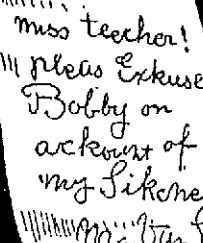 miss teecher!
pleas Exkuse
Bobby on
ackount of
my Sikne